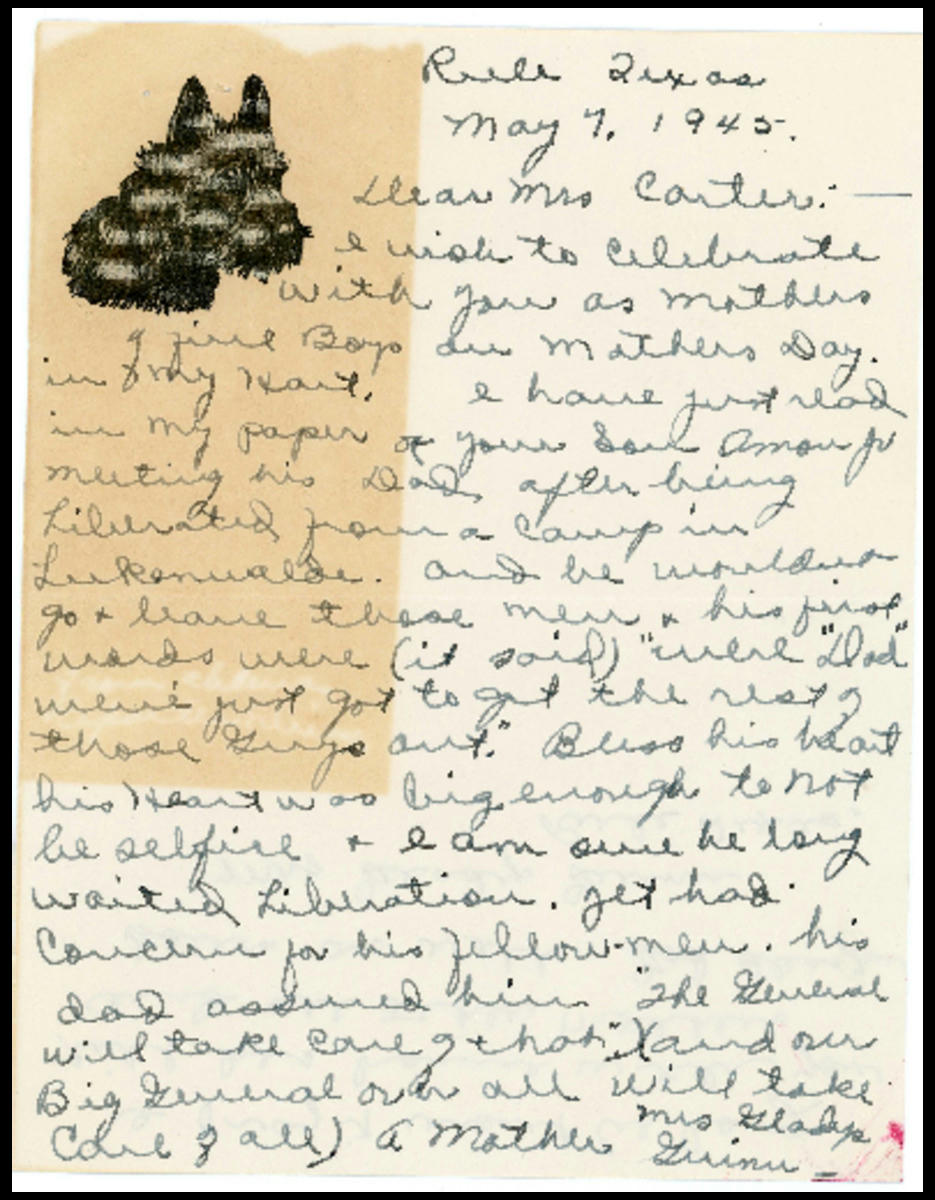 Rule Texas
May 7, 1945.
Dear Mrs Carter: —
I wish to celebrate
with you as mothers
of fine Boys on Mothers Day.
in my Hart. I have just read
in my paper of your Son Amon Jr
meeting his Dad, after being
Liberated from a Camp in
Lukenwalde. and he wouldn't
go & leave those men & his first
words were (it said) "were "Dad"
weve just got to get the rest of
those Guys out." Bless his heart
his Heart was big enough to not
be selfise & I am sure he long
waited Liberation. yet had
Concern for his fellow-men. his
dad assured him "The General
will take care of that") (and our
Big General over all will take
Care of all) A Mother Mrs Gladys
Guinn –